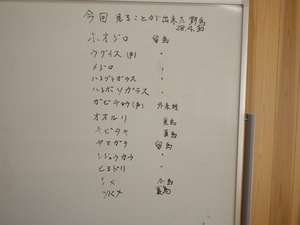 今回 見ることが出来た野鳥
28.4.30
ホオジロ 留鳥
ウグイス(声) 〃
メジロ 〃
ハシブトガラス 〃
ハシボソガラス 〃
ガビチョウ(声) 外来種
オオルリ 夏鳥
キビタキ 夏鳥
ヤマガラ 留鳥
シジュウカラ 〃
ヒヨドリ 〃
シメ 冬鳥
ツバメ 夏鳥